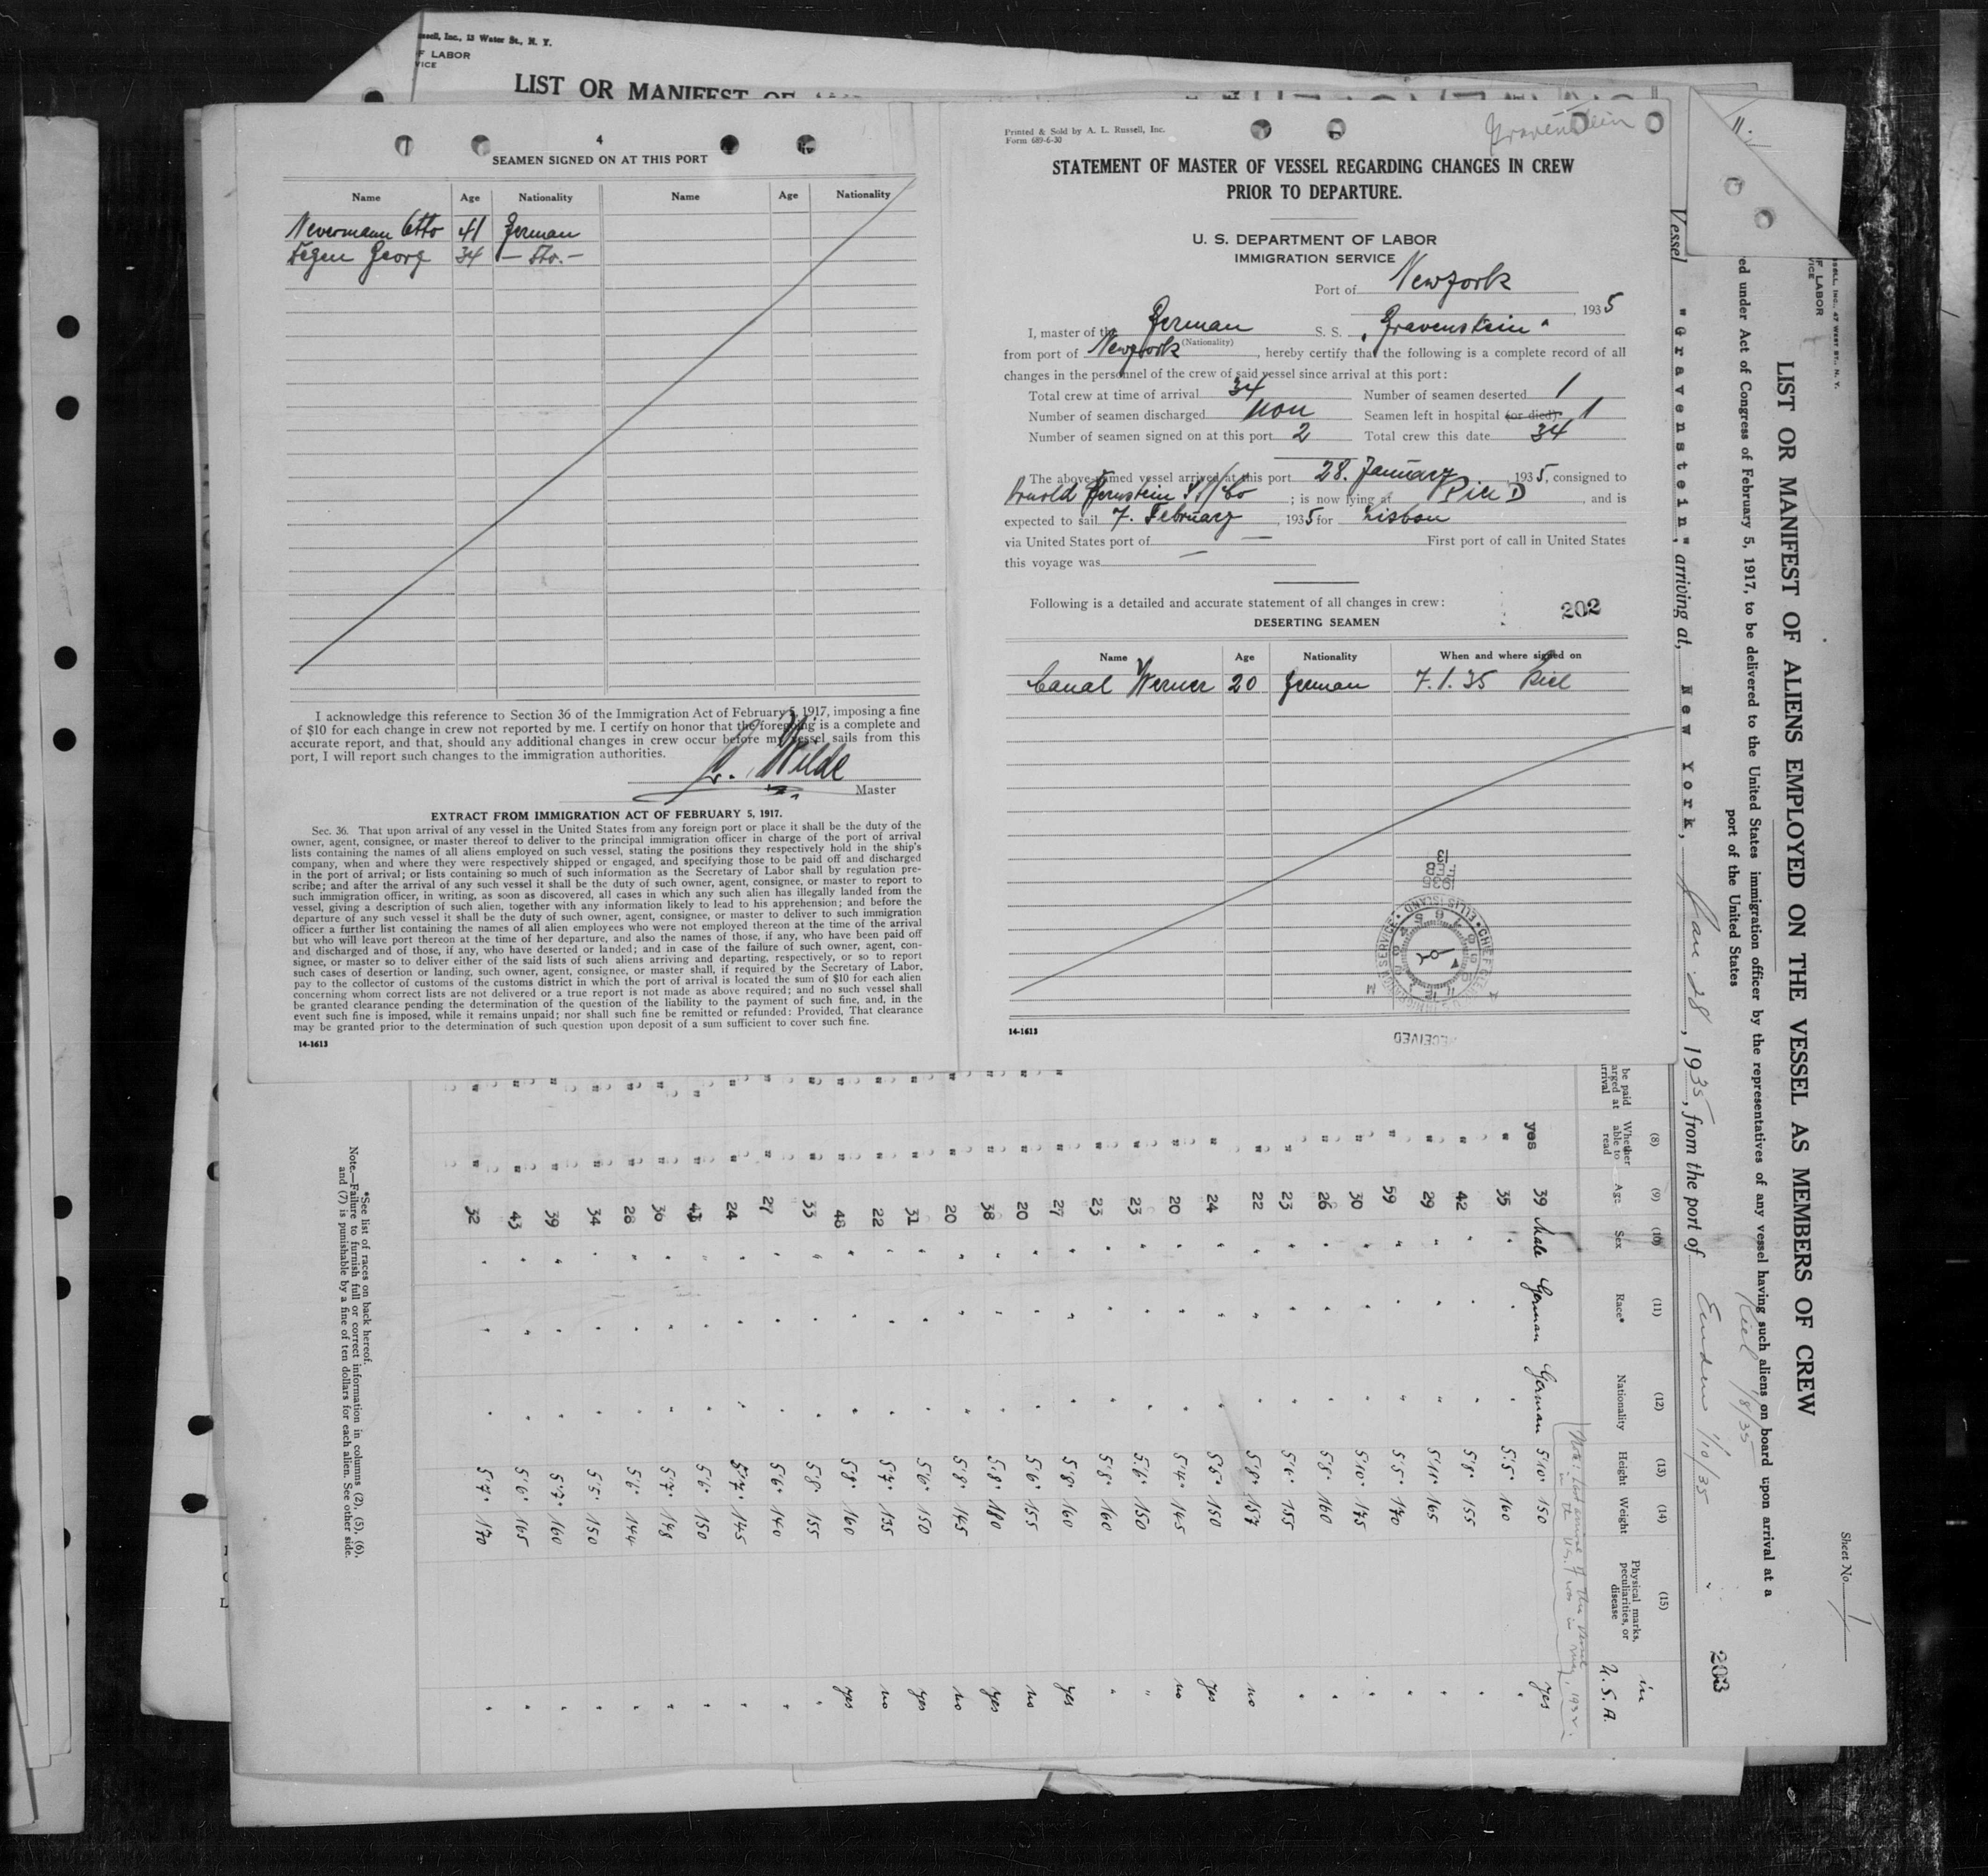 LIST OR MANIFEST OF
F LABOR
VICE
4
SEAMEN SIGNED ON AT THIS PORT
Name Age Nationality Name Age Nationality
Nevermann Otto 41 German
Georg 34 — Dto. —
I acknowledge this reference to Section 36 of the Immigration Act of February 5, 1917, imposing a fine
of $10 for each change in crew not reported by me. I certify on honor that the foregoing is a complete and
accurate report, and that, should any additional changes in crew occur before my vessel sails from this
port, I will report such changes to the immigration authorities.
Wilde
Master
EXTRACT FROM IMMIGRATION ACT OF FEBRUARY 5, 1917.
Sec. 36. That upon arrival of any vessel in the United States from any foreign port or place it shall be the duty of the
owner, agent, consignee, or master thereof to deliver to the principal immigration officer in charge of the port of arrival
lists containing the names of all aliens employed on such vessel, stating the positions they respectively hold in the ship's
company, when and where they were respectively shipped or engaged, and specifying those to be paid off and discharged
in the port of arrival; or lists containing so much of such information as the Secretary of Labor shall by regulation pre-
scribe; and after the arrival of any such vessel it shall be the duty of such owner, agent, consignee, or master to report to
such immigration officer, in writing, as soon as discovered, all cases in which any such alien has illegally landed from the
vessel, giving a description of such alien, together with any information likely to lead to his apprehension; and before the
departure of any such vessel it shall be the duty of such owner, agent, consignee, or master to deliver to such immigration
officer a further list containing the names of all alien employees who were not employed thereon at the time of the arrival
but who will leave port thereon at the time of her departure, and also the names of those, if any, who have been paid off
and discharged and of those, if any, who have deserted or landed; and in case of the failure of such owner, agent, con-
signee, or master so to deliver either of the said lists of such aliens arriving and departing, respectively, or so to report
such cases of desertion or landing, such owner, agent, consignee, or master shall, if required by the Secretary of Labor,
pay to the collector of customs of the customs district in which the port of arrival is located the sum of $10 for each alien
concerning whom correct lists are not delivered or a true report is not made as above required; and no such vessel shall
be granted clearance pending the determination of the question of the liability to the payment of such fine, and, in the
event such fine is imposed, while it remains unpaid; nor shall such fine be remitted or refunded: Provided, That clearance
may be granted prior to the determination of such question upon deposit of a sum sufficient to cover such fine.
14-1613
Printed & Sold by A. L. Russell, Inc.
Form 689-6-30
Gravenstein
STATEMENT OF MASTER OF VESSEL REGARDING CHANGES IN CREW
PRIOR TO DEPARTURE.
U. S. DEPARTMENT OF LABOR
IMMIGRATION SERVICE
Port of Newyork
, 1935
I, master of the German S. S. „Gravenstein"
(Nationality)
from port of Newyork, hereby certify that the following is a complete record of all
changes in the personnel of the crew of said vessel since arrival at this port:
Total crew at time of arrival 34 Number of seamen deserted 1
Number of seamen discharged non Seamen left in hospital (or died) 1
Number of seamen signed on at this port 2 Total crew this date 34
The above-named vessel arrived at this port 28. January, 1935, consigned to
Arnold Bernstein S/S/Co; is now lying at Pier D, and is
expected to sail 7. February, 1935 for Lisbon
via United States port of — First port of call in United States
this voyage was —
Following is a detailed and accurate statement of all changes in crew:
202
DESERTING SEAMEN
Name Age Nationality When and where signed on
Canal Werner 20 German 7.1.35 Kiel
13
FEB
1935
ELLIS ISLAND
RECEIVED
14-1613
LIST OR MANIFEST OF ALIENS EMPLOYED ON THE VESSEL AS MEMBERS OF CREW
ed under Act of Congress of February 5, 1917, to be delivered to the United States immigration officer by the representatives of any vessel having such aliens on board upon arrival at a
port of the United States
Sheet No. 1
203
Vessel "Gravenstein", arriving at, New York, Jan 28, 1935, from the port of Emden 1/10/35
Kiel 1/8/35
(8) Whether able to read
(9) Age
(10) Sex
(11) Race*
(12) Nationality
(13) Height
(14) Weight
(15) Physical marks, peculiarities, or disease
in U.S.A.
yes 39 Male German German 5'10" 150 yes
35 5'5" 160
42 5'8" 155
29 5'11" 165
59 5'5" 170
30 5'10" 175
26 5'8" 160
23 5'6" 155
22 5'8" 157 no
24 5'5" 150 yes
20 5'4" 145 no
23 5'6" 150
23 5'8" 160
27 5'8" 160 yes
20 5'6" 155 no
38 5'8" 180 yes
20 5'8" 145 no
31 5'6" 150 yes
22 5'7" 135 no
48 5'8" 160 yes
33 5'8" 155
27 5'6" 140
24 5'7" 145
5'6" 150
36 5'7" 148
28 5'6" 144
34 5'5" 150
39 5'7" 160
43 5'6" 165
32 5'7" 170
*See list of races on back hereof.
Note.—Failure to furnish full or correct information in columns (2), (5), (6),
and (7) is punishable by a fine of ten dollars for each alien. See other side.